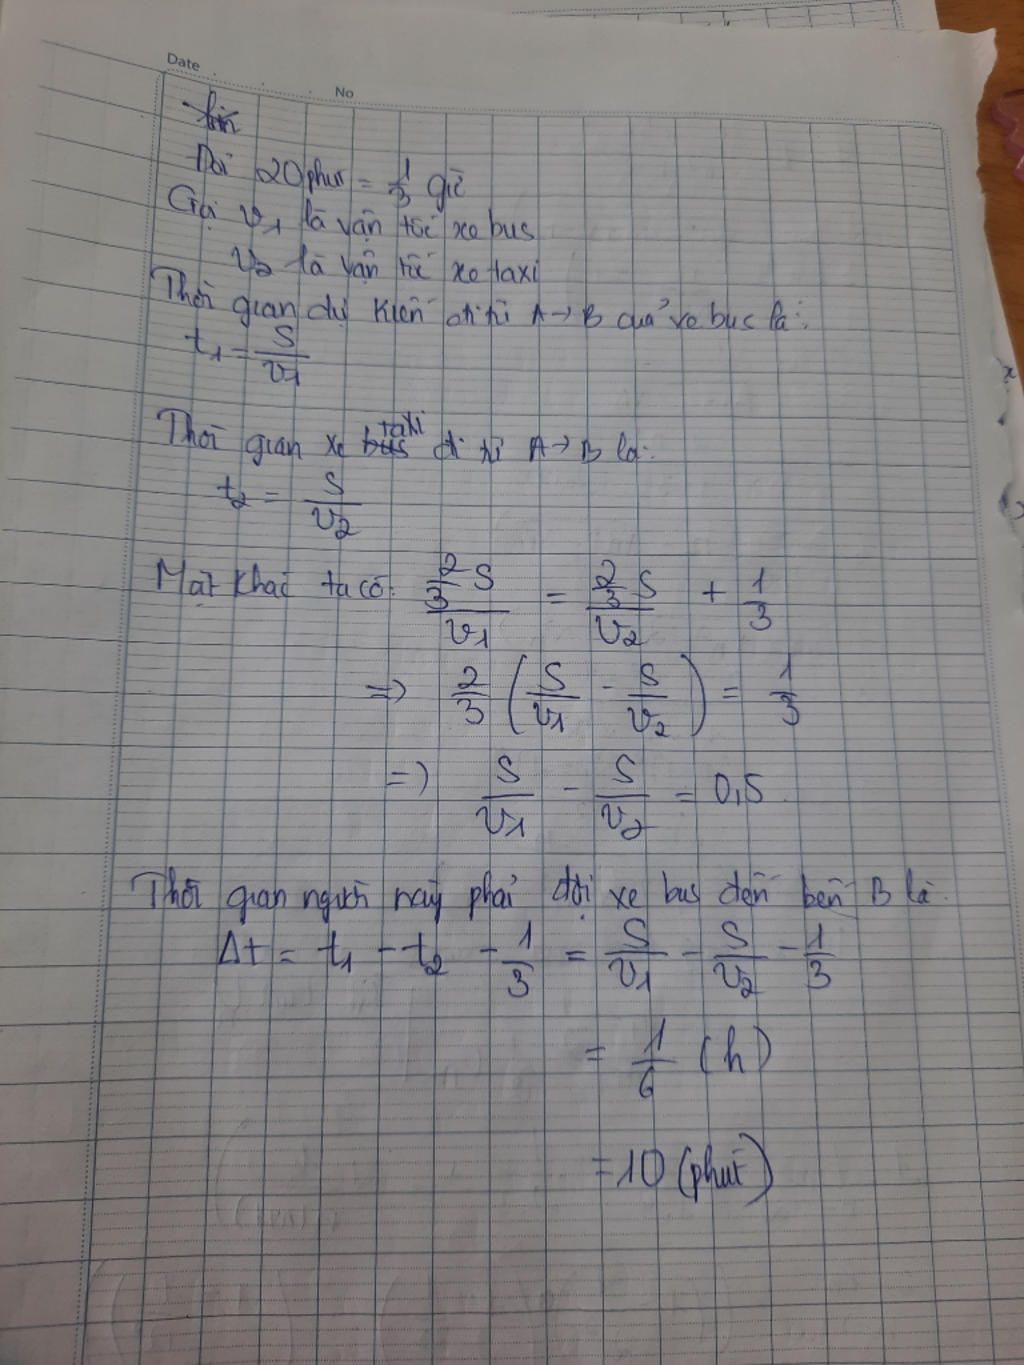 Date
No
Đổi 20 phút = 1/3 giờ
Gọi v1 là vận tốc xe bus
v2 là vận tốc xe taxi
Thời gian dự kiến đi từ A → B của xe bus là:
t1 = S/v1
Thời gian xe taxi đi từ A → B là:
t2 = S/v2
Mặt khác ta có: (2/3 S)/v1 = (2/3 S)/v2 + 1/3
=> 2/3 (S/v1 - S/v2) = 1/3
=> S/v1 - S/v2 = 0,5
Thời gian người này phải đợi xe bus đến bến B là:
Δt = t1 - t2 - 1/3 = S/v1 - S/v2 - 1/3
= 1/6 (h)
= 10 (phút)